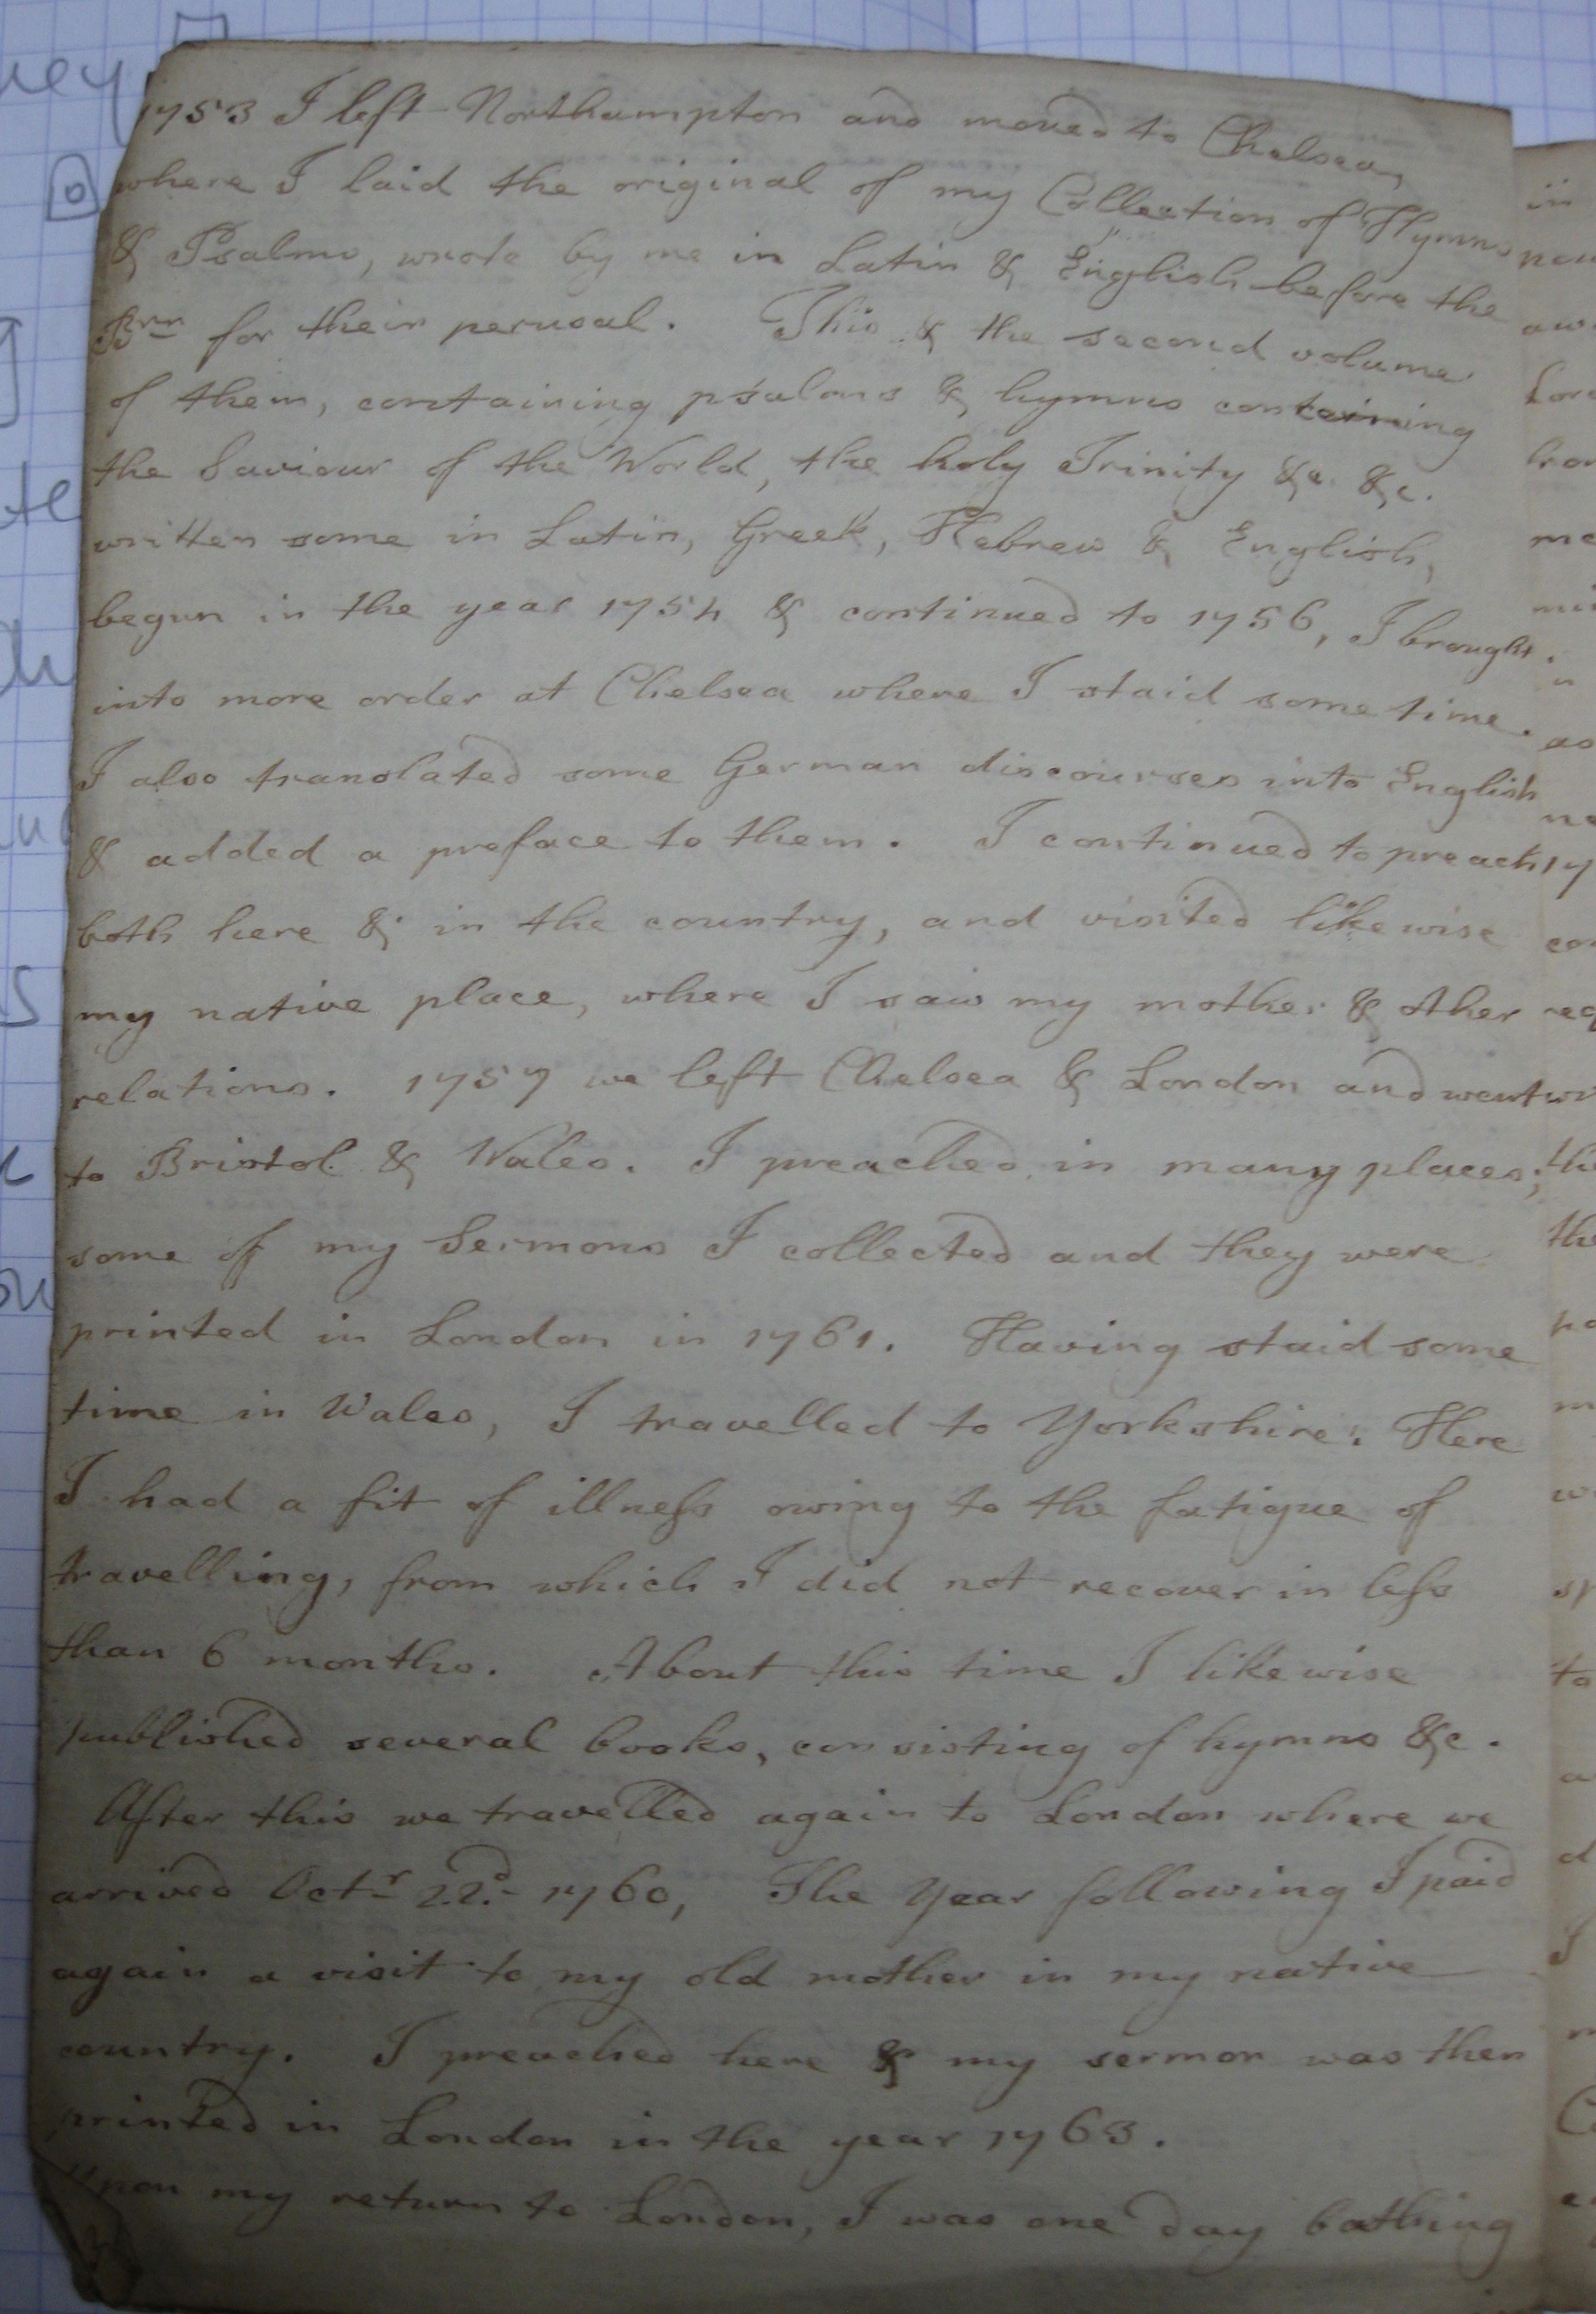 1753 I left Northampton and moved to Chelsea,
where I laid the original of my Collection of Hymns
& Psalms, wrote by me in Latin & English before the
Brn for their perusal. This & the second volume
of them, containing psalms & hymns concerning
the Saviour of the World, the holy Trinity &c. &c.
written some in Latin, Greek, Hebrew & English,
begun in the year 1754 & continued to 1756, I brought
into more order at Chelsea where I staid some time.
I also translated some German discourses into English
& added a preface to them. I continued to preach
both here & in the country, and visited likewise
my native place, where I saw my mother & other
relations. 1757 we left Chelsea & London and went
to Bristol & Wales. I preached in many places;
some of my Sermons I collected and they were
printed in London in 1761. Having staid some
time in Wales, I travelled to Yorkshire. Here
I had a fit of illness owing to the fatigue of
travelling, from which I did not recover in less
than 6 months. About this time I likewise
published several books, consisting of hymns &c.
After this we travelled again to London where we
arrived Octr 22d 1760, The Year following I paid
again a visit to my old mother in my native
country. I preached here & my sermon was then
printed in London in the year 1763.
Upon my return to London, I was one day bathing